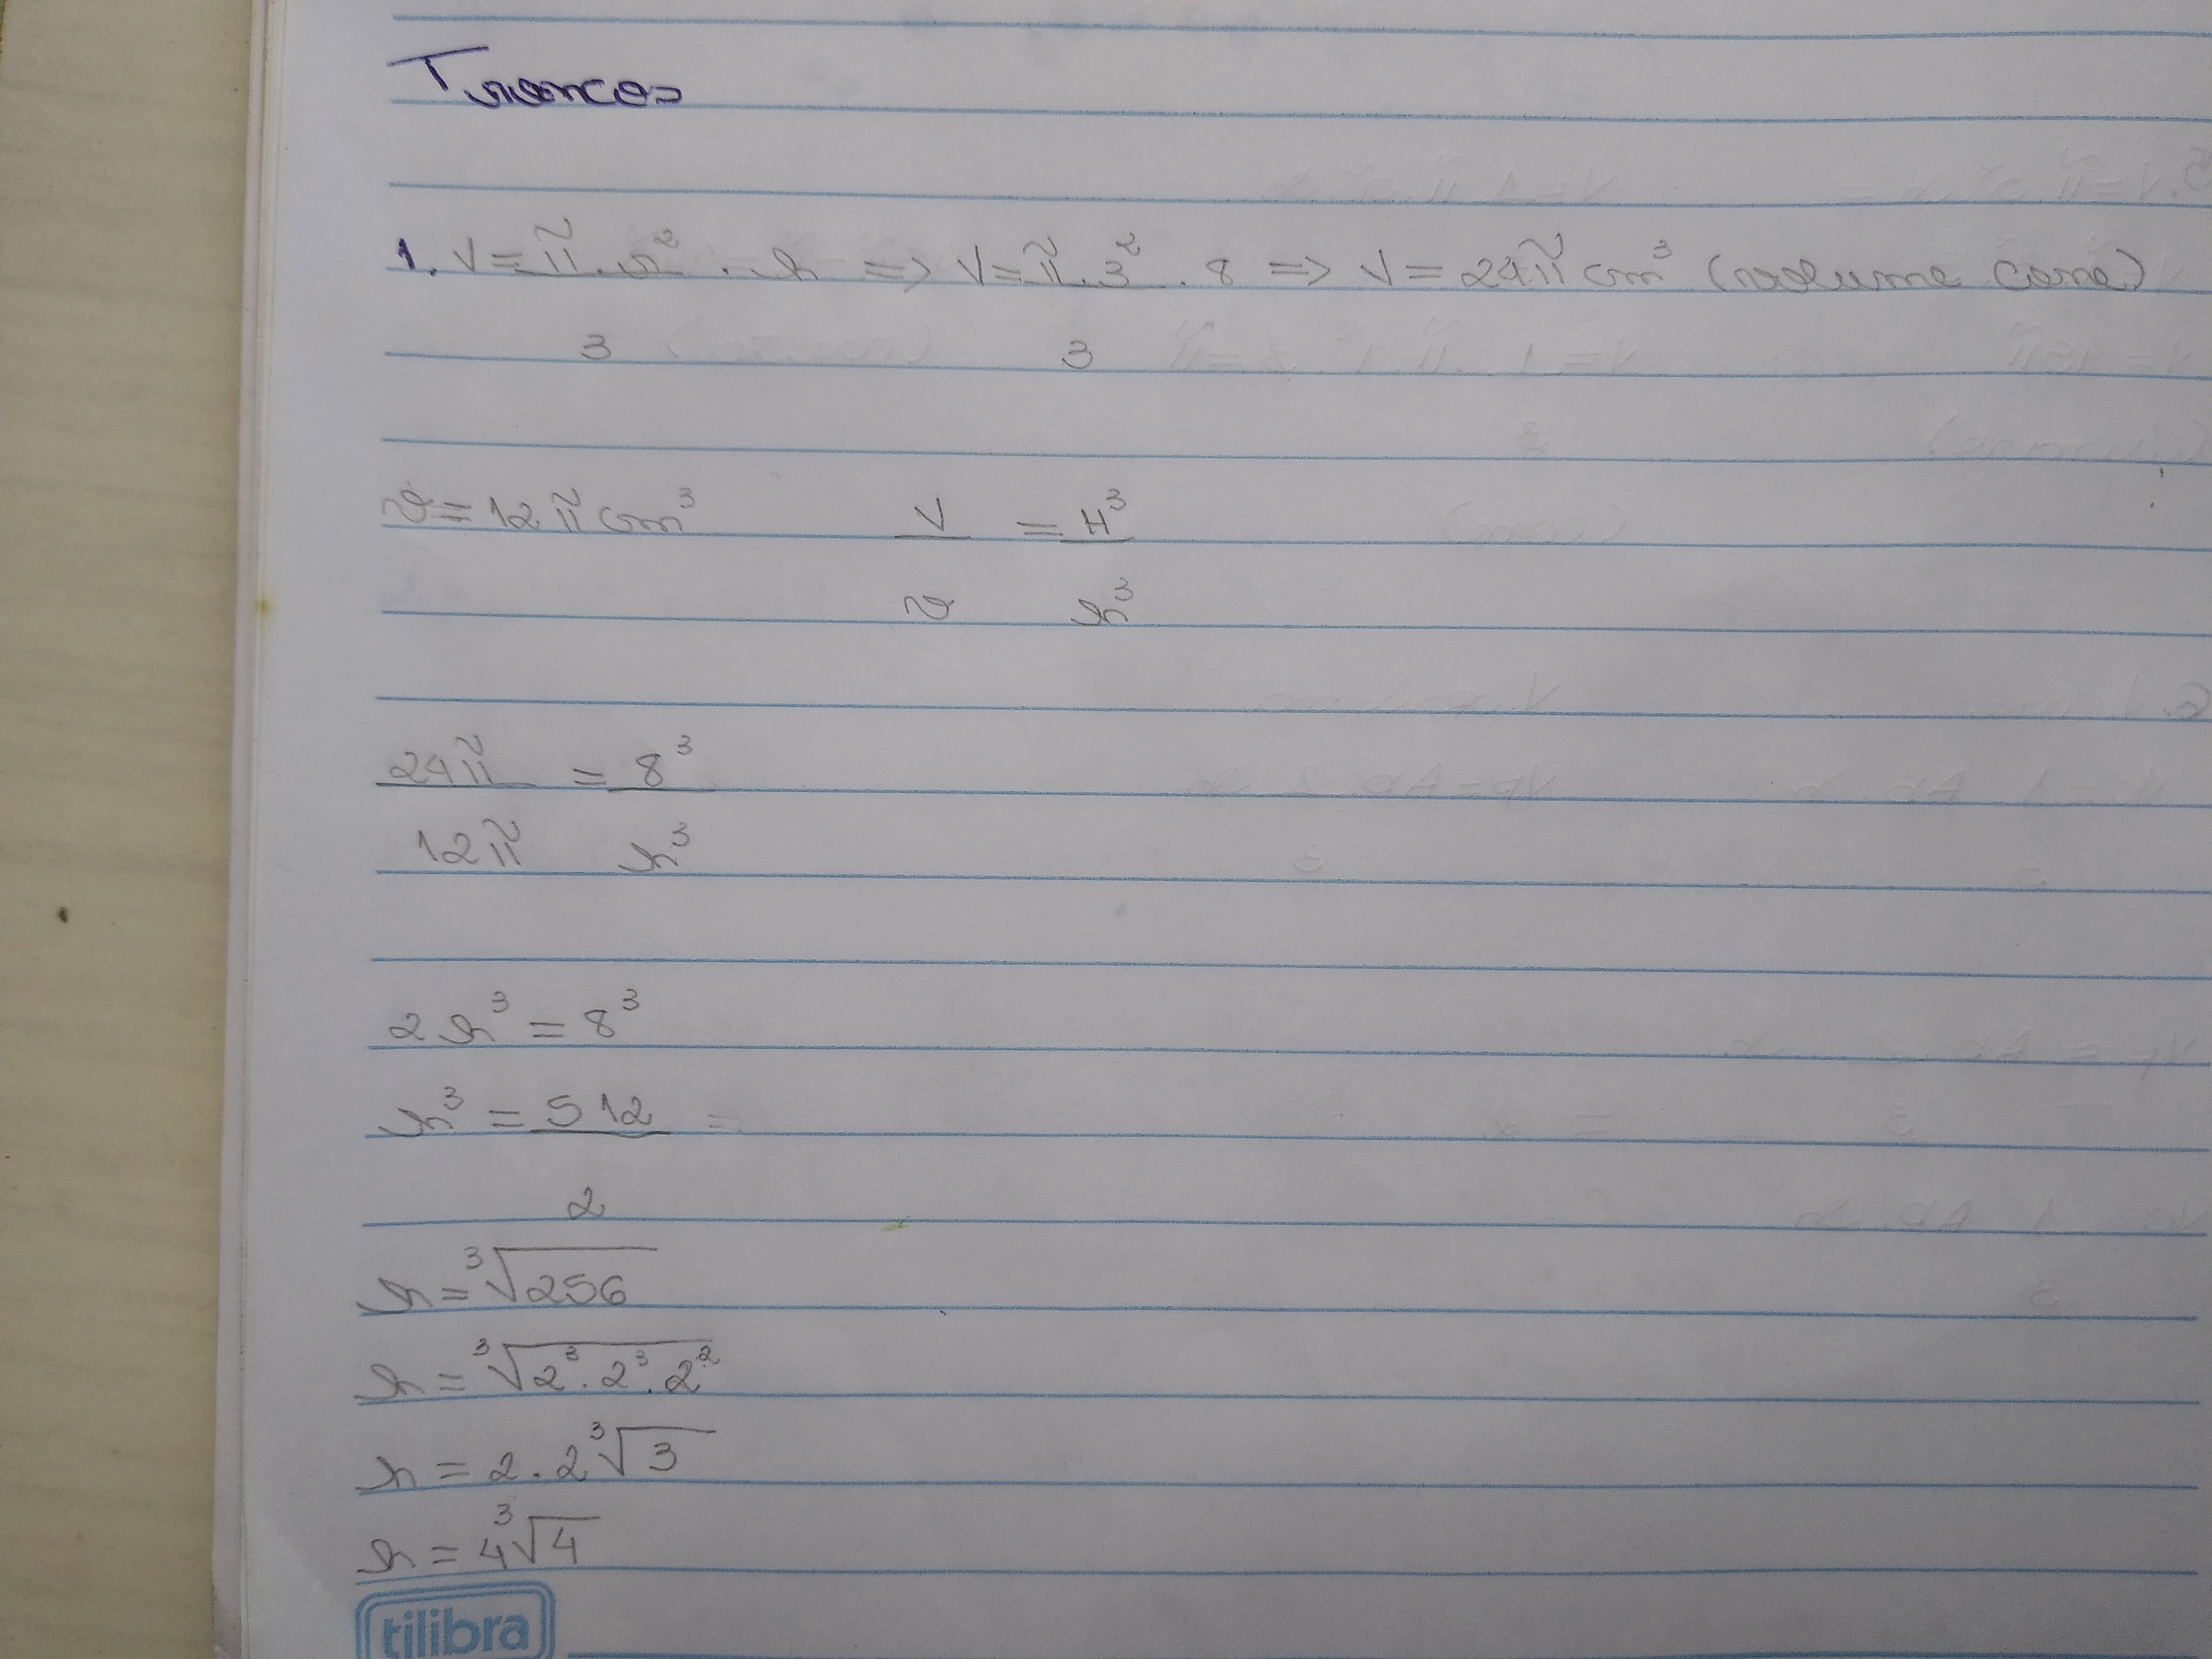 Troncos
1. V = π . r² . h => V = π . 3² . 8 => V = 24π cm³ (volume cone)
3 3
v = 12π cm³ V = H³
v h³
24π = 8³
12π h³
2h³ = 8³
h³ = 512 =
2
h = ³√256
h = ³√2³ . 2³ . 2²
h = 2 . 2 ³√3
h = 4 ³√4
tilibra